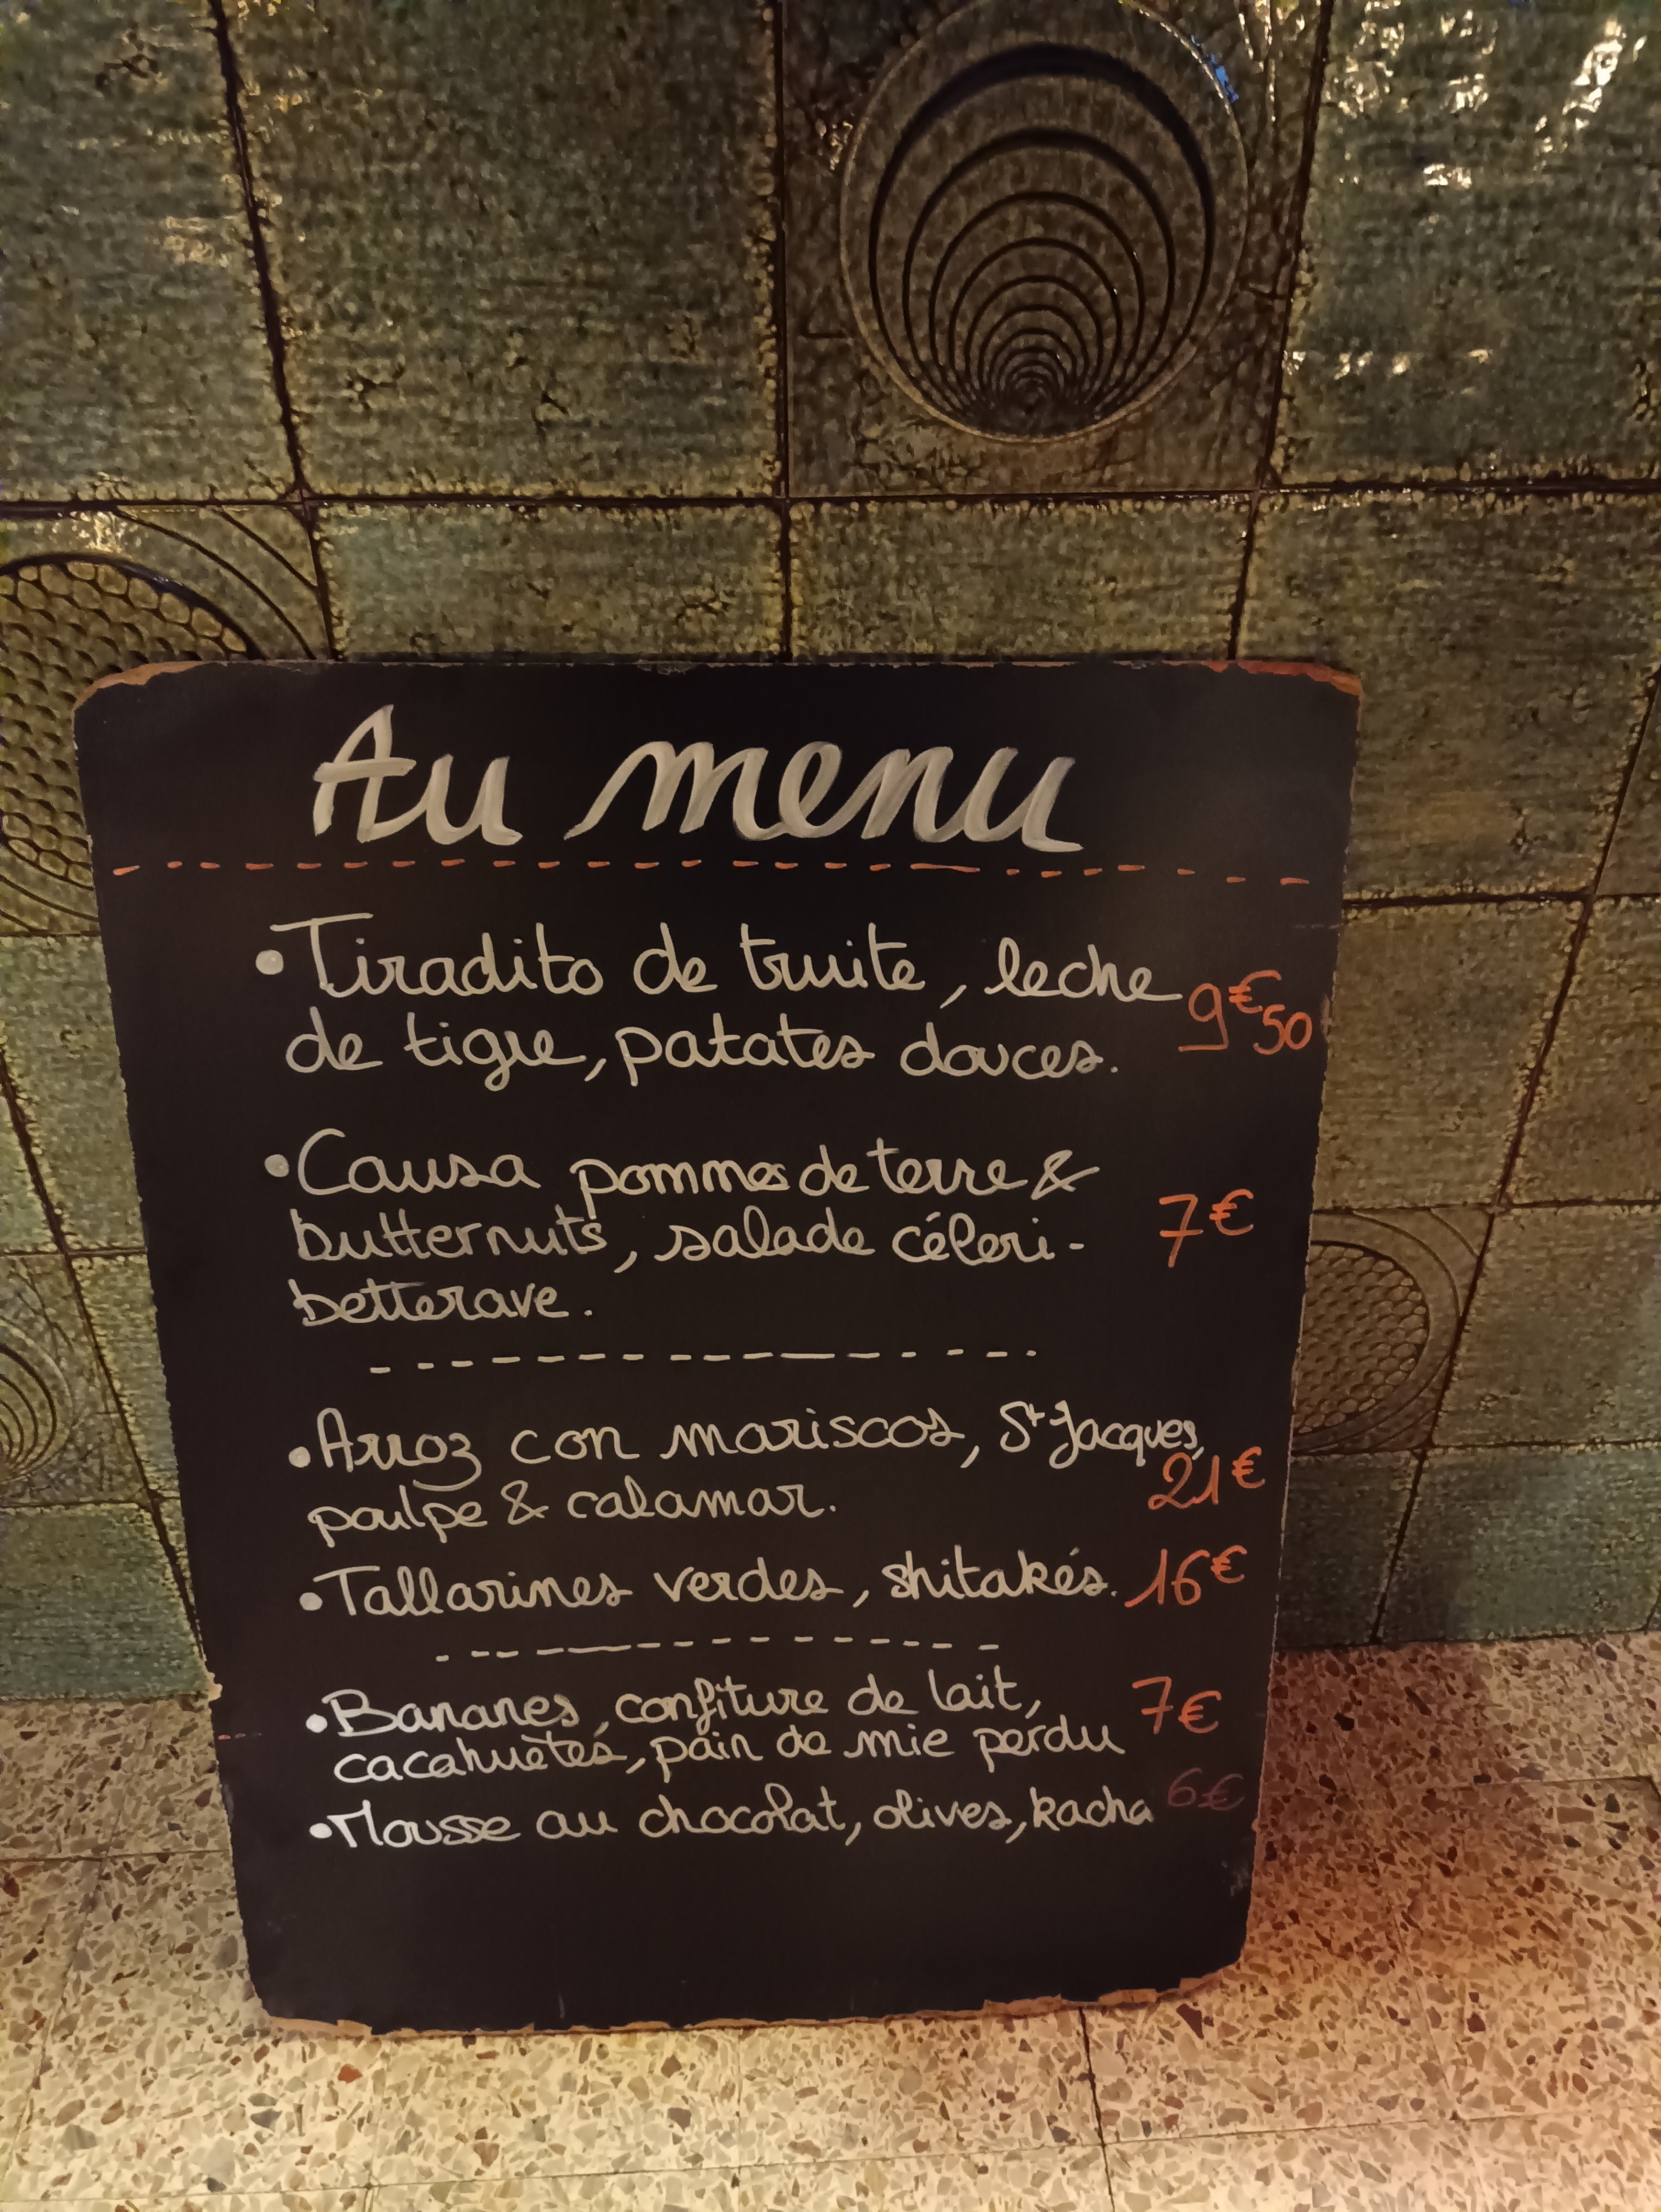 Au menu
• Tiradito de truite, leche
de tigre, patates douces. 9€50
• Causa pommes de terre &
butternuts, salade céleri- 7€
betterave.
• Arroz con mariscos, St Jacques,
poulpe & calamar. 21€
• Tallarines verdes, shitakés. 16€
• Bananes, confiture de lait, 7€
cacahuètes, pain de mie perdu
• Mousse au chocolat, olives, kacha 6€